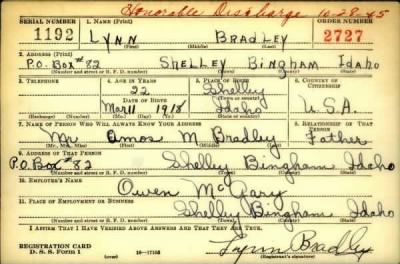 Honorable Discharge 10-28-45
SERIAL NUMBER 1. NAME (Print) ORDER NUMBER
1192 LYNN BRADLEY 2727
(First) (Middle) (Last)
2. ADDRESS (Print)
P.O. Box #82 SHELLEY BINGHAM IDAHO
(Number and street or R. F. D. number) (Town) (County) (State)
3. TELEPHONE 4. AGE IN YEARS 5. PLACE OF BIRTH 6. COUNTRY OF CITIZENSHIP
22 Shelley
DATE OF BIRTH (Town or county)
Mar 11 1918 Idaho U.S.A.
(Exchange) (Number) (Mo.) (Day) (Yr.) (State or country)
7. NAME OF PERSON WHO WILL ALWAYS KNOW YOUR ADDRESS 8. RELATIONSHIP OF THAT PERSON
Mr Amos M Bradley Father
(Mr., Mrs., Miss) (First) (Middle) (Last)
9. ADDRESS OF THAT PERSON
P.O. Box #82 Shelley Bingham Idaho
(Number and street or R. F. D. number) (Town) (County) (State)
10. EMPLOYER'S NAME
Owen McGary
11. PLACE OF EMPLOYMENT OR BUSINESS
Shelley Bingham Idaho
(Number and street or R. F. D. number) (Town) (County) (State)
I AFFIRM THAT I HAVE VERIFIED ABOVE ANSWERS AND THAT THEY ARE TRUE.
REGISTRATION CARD
D. S. S. Form 1 16—17105 Lynn Bradley
(Registrant's signature)